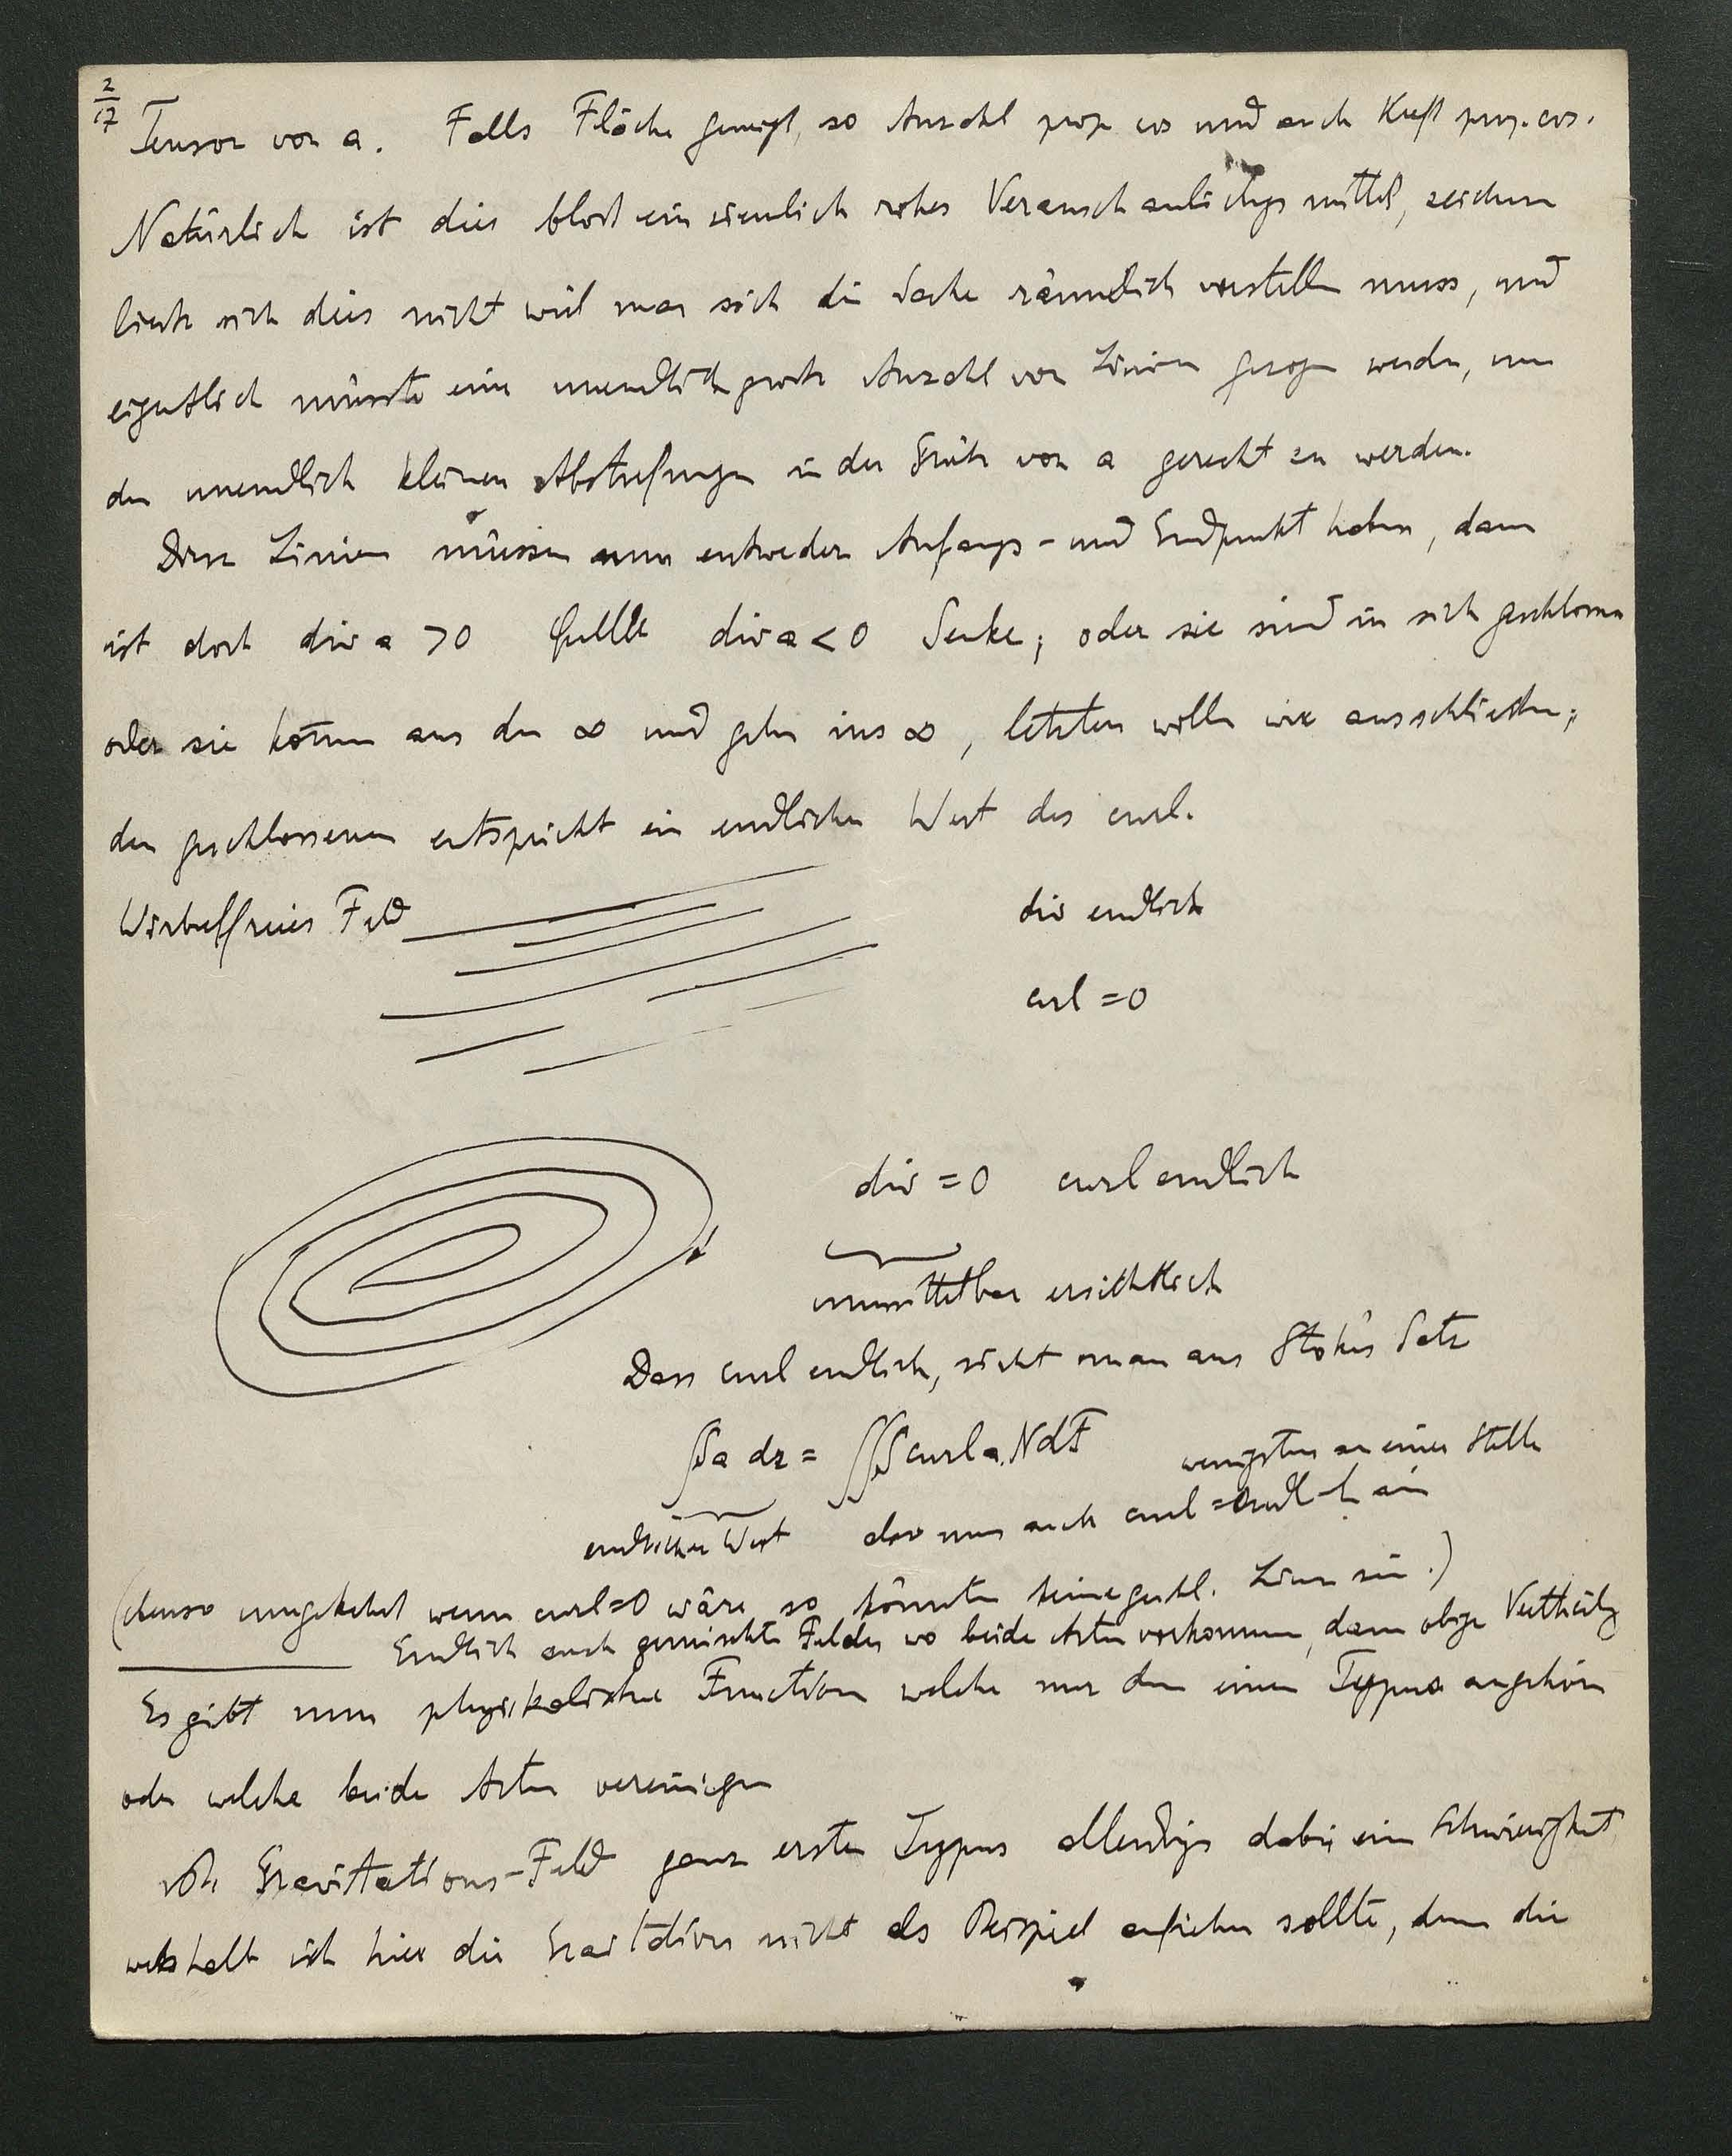 2/17
Tensor von a. Falls Fläche geneigt, so Anzahl prop cos und auch Kraft prop. cos.
Natürlich ist dies bloß ein ziemlich rohes Veranschaulichgsmittel, zeichnen
ließe sich dies nicht weil man sich die Sache räumlich vorstellen muss, und
eigentlich müsste eine unendlich große Anzahl von Linien gezogen werden, um
den unendlich kleinen Abstufungen in der Größe von a gerecht zu werden.
Diese Linien müssen nun entweder Anfangs- und Endpunkt haben, dann
ist dort div a > 0 Quelle div a < 0 Senke; oder sie sind in sich geschlossen
oder sie kommen aus dem ∞ und gehen ins ∞, letzten wollen wir ausschließen;
den geschlossenen entspricht ein endlicher Wert des curl.
Wirbelfreies Feld
div endlich
curl = 0
div = 0 curl endlich
unmittelbar ersichtlich
Dass curl endlich, sieht man aus Stokes Satz
∫Sa dr = ∫∫S curl a. N dF
wenigstens an einer Stelle
endlicher Wert muss auch curl = endlich sein
(ebenso umgekehrt wenn curl=0 wäre so könnten keine geschl. Linien sein.)
Endlich auch gemischte Felder wo beide Arten vorkommen, dann obige Vertheilg
Es gibt nun physikalische Function welche nur dem einen Typus angehören
oder welche beide Arten vereinigen
Gravitations-Feld ganz erster Typus allerdings dabei eine Schwierigkeit,
weshalb ich hier die Gravitation nicht als Beispiel anführen sollte, denn die